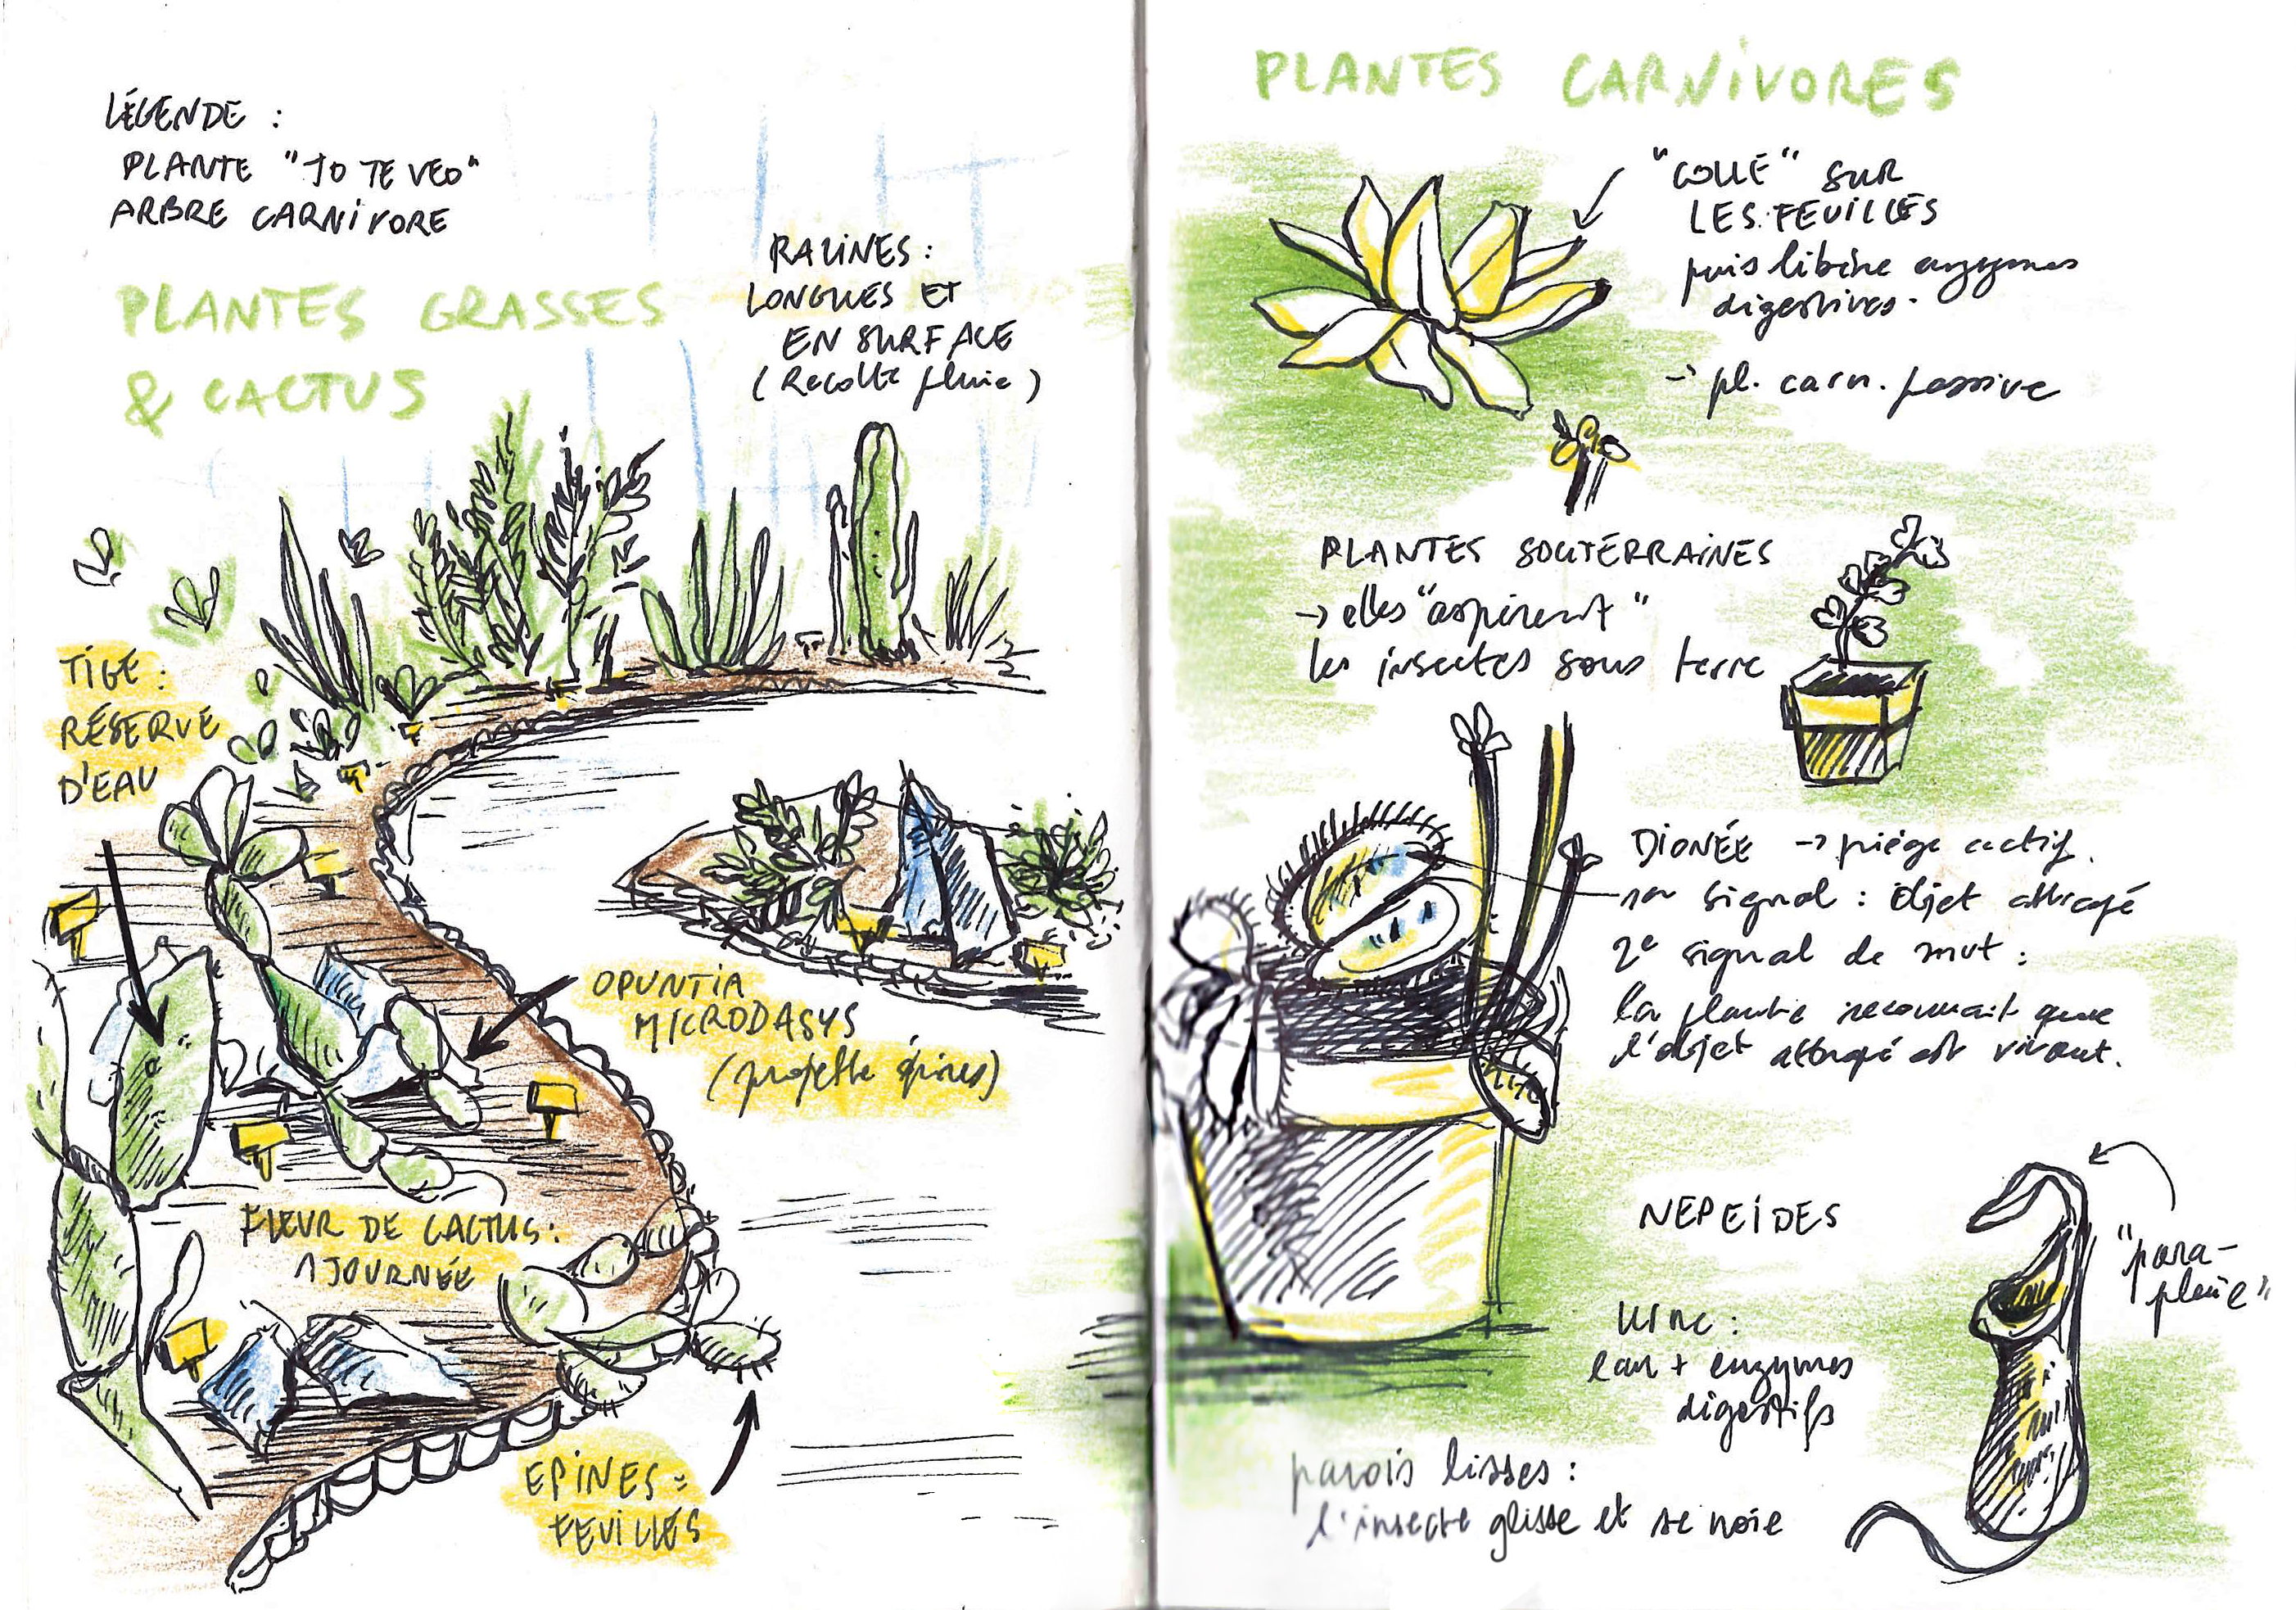 LÉGENDE :
PLANTE "JO TE VEO"
ARBRE CARNIVORE
PLANTES GRASSES
& CACTUS
RACINES :
LONGUES ET
EN SURFACE
(Récolte pluie)
TIGE :
RÉSERVE
D'EAU
OPUNTIA
MICRODASYS
(projette épines)
FLEUR DE CACTUS :
1 JOURNÉE
EPINES =
FEUILLES
PLANTES CARNIVORES
"COLLE" SUR
LES FEUILLES
puis libère enzymes
digestives.
-> pl. carn. passive
PLANTES SOUTERRAINES
-> elles "aspirent"
les insectes sous terre
DIONÉE -> piège actif.
1er signal : objet attrapé
2e signal de mvt :
la plante reconnait que
l'objet attrapé est vivant.
NEPEIDES
"para-
pluie"
Urne :
eau + enzymes
digestifs
parois lisses :
l'insecte glisse et se noie